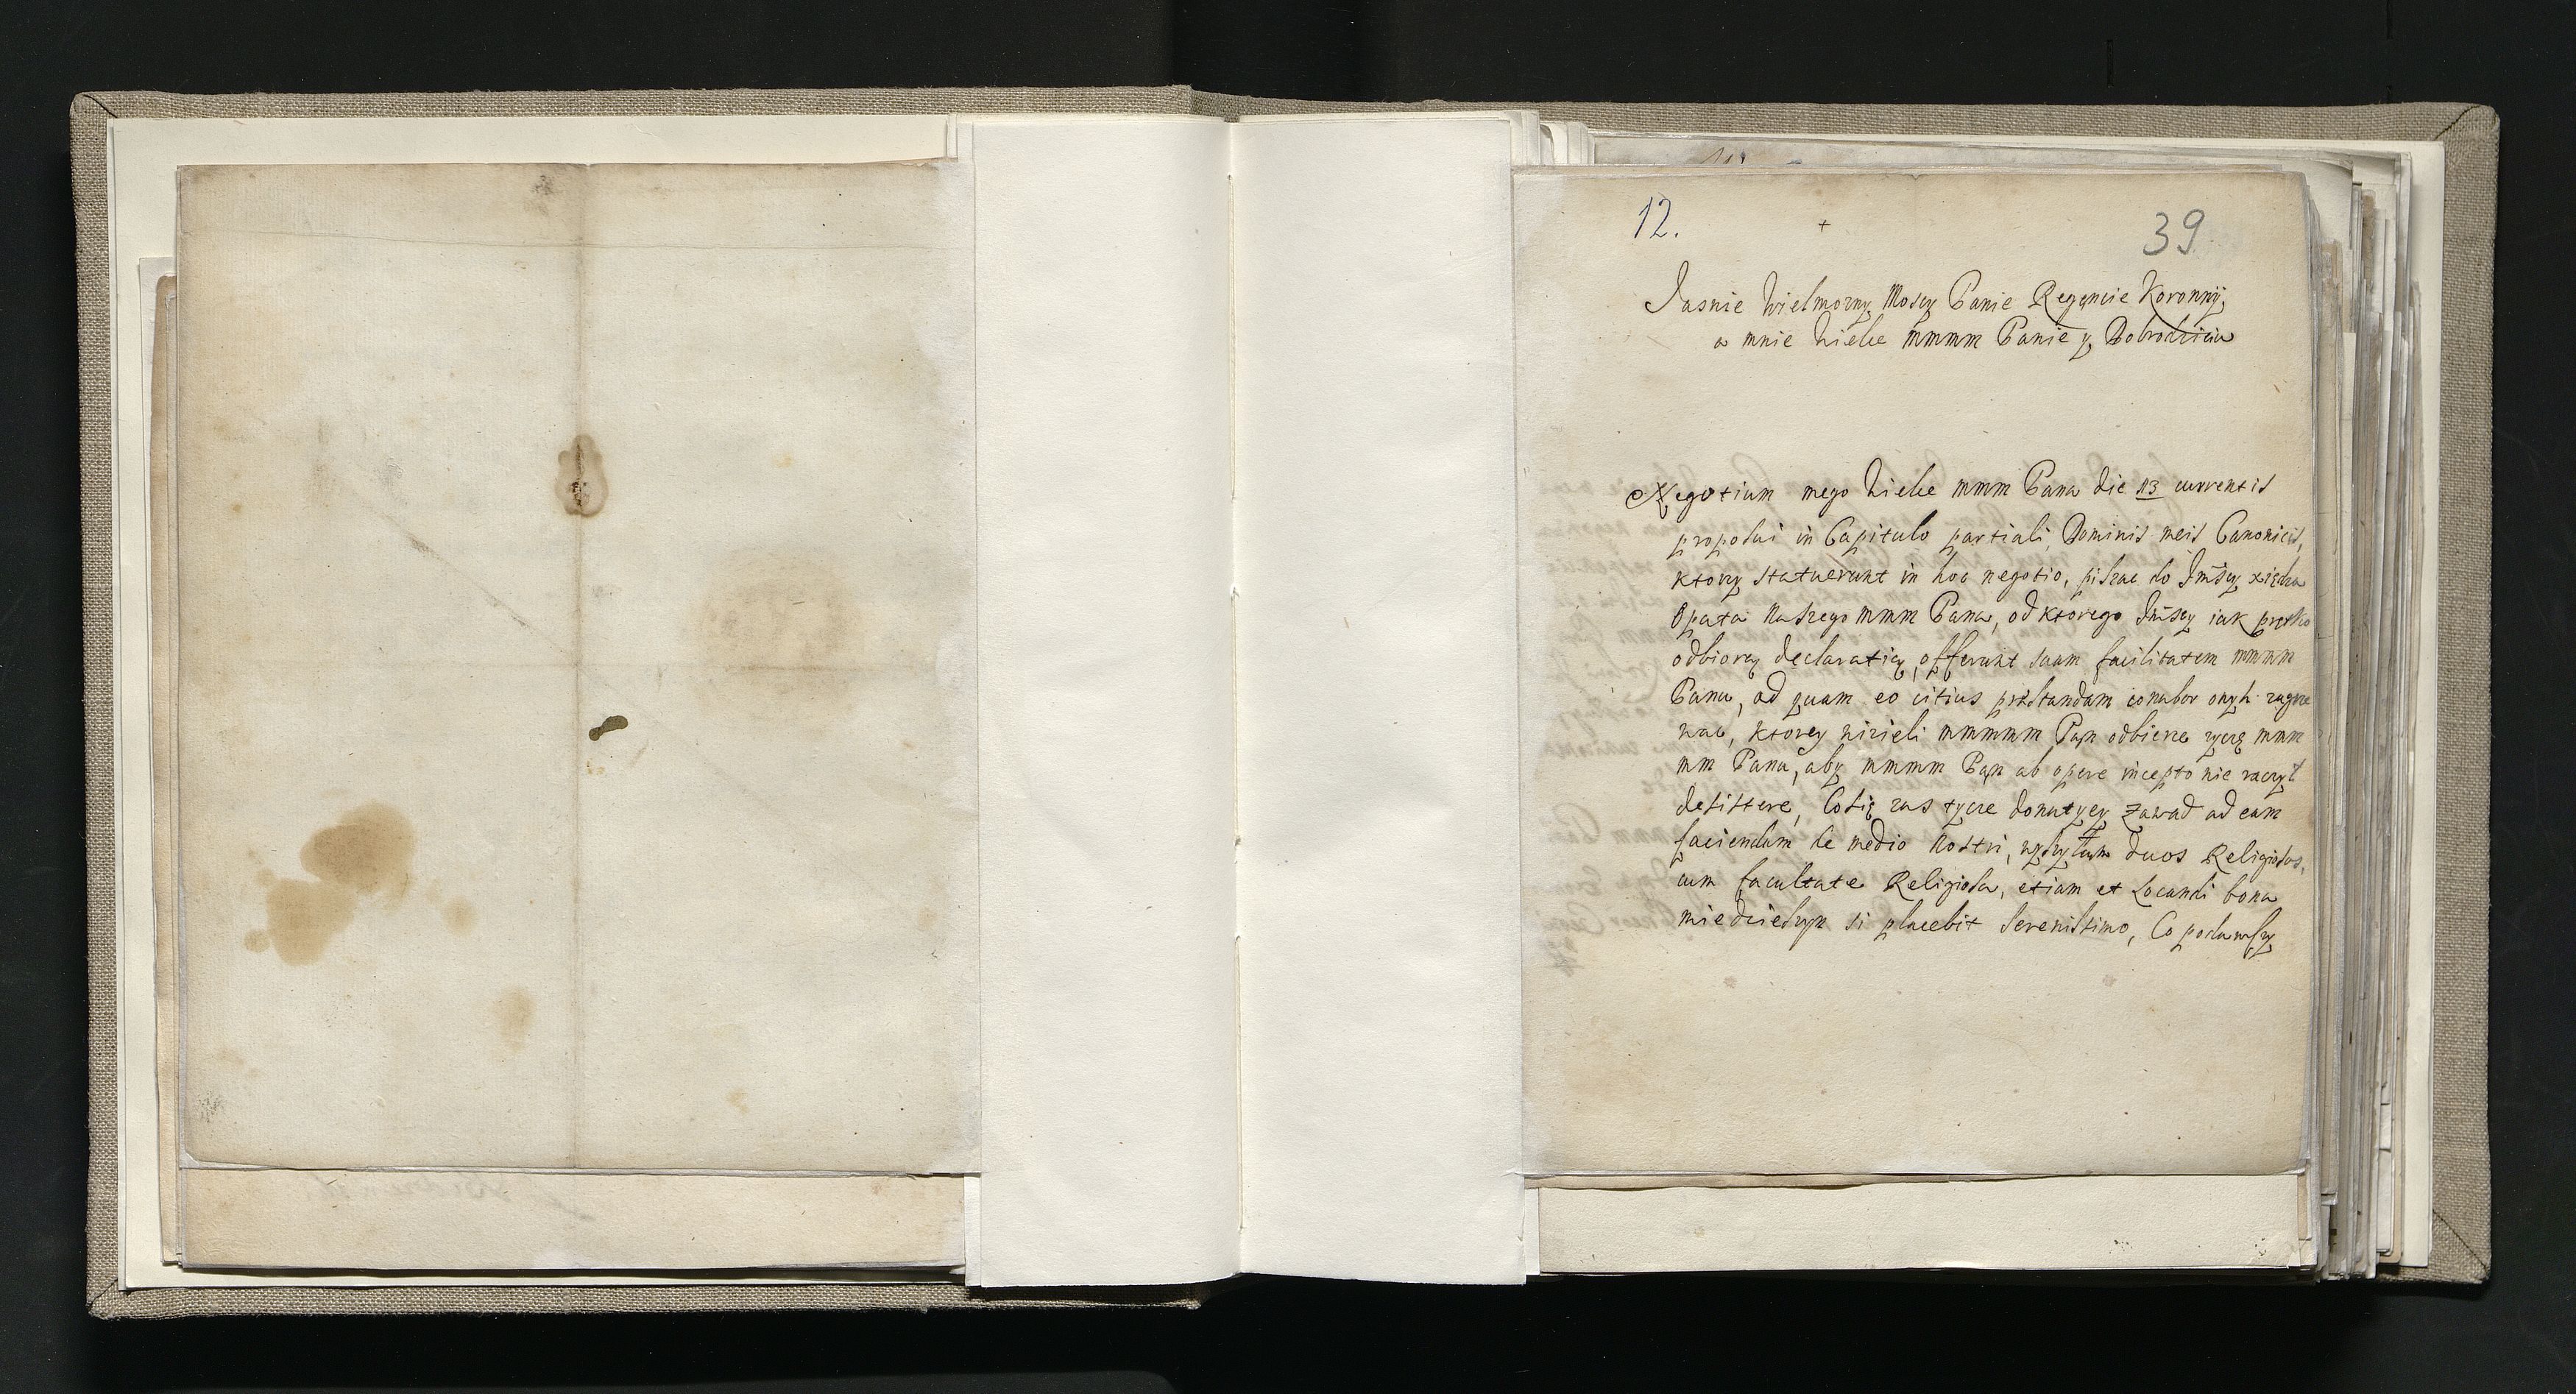 12.
+
39
Jasnie Wielmozny Moscy Panie Regencie Koronny,
a mnie Wielce mmmm Panie y Dobrodzieiu
Negotium mego Wielce mmm Pana die 13 currentis
proposui in Capitulo partiali, Dominis meis Canonicis,
ktorzy statuerunt in hoc negotio, pisac do Jmscy xiędza
Opata Naszego mmm Pana, od ktorego Jmscy iak prętko
odbiorą declaratią, offerunt suam facilitatem mmmm
Pana, ad quam eo citius præstandam conabor onych
wac, ktorey nizieli mmmmm Pan odbierze zyczę mmm
mm Pana, aby mmmm Pan ab opere incepto nie raczył
desistere, Cosię zas tycze donatyey Zawad ad eam
faciendam de medio Nostri, wysylam duos Religiosos,
cum facultate Religiosa, etiam et Locandi bona
miedzieszyn si placebit Serenissimo, Co podawszy